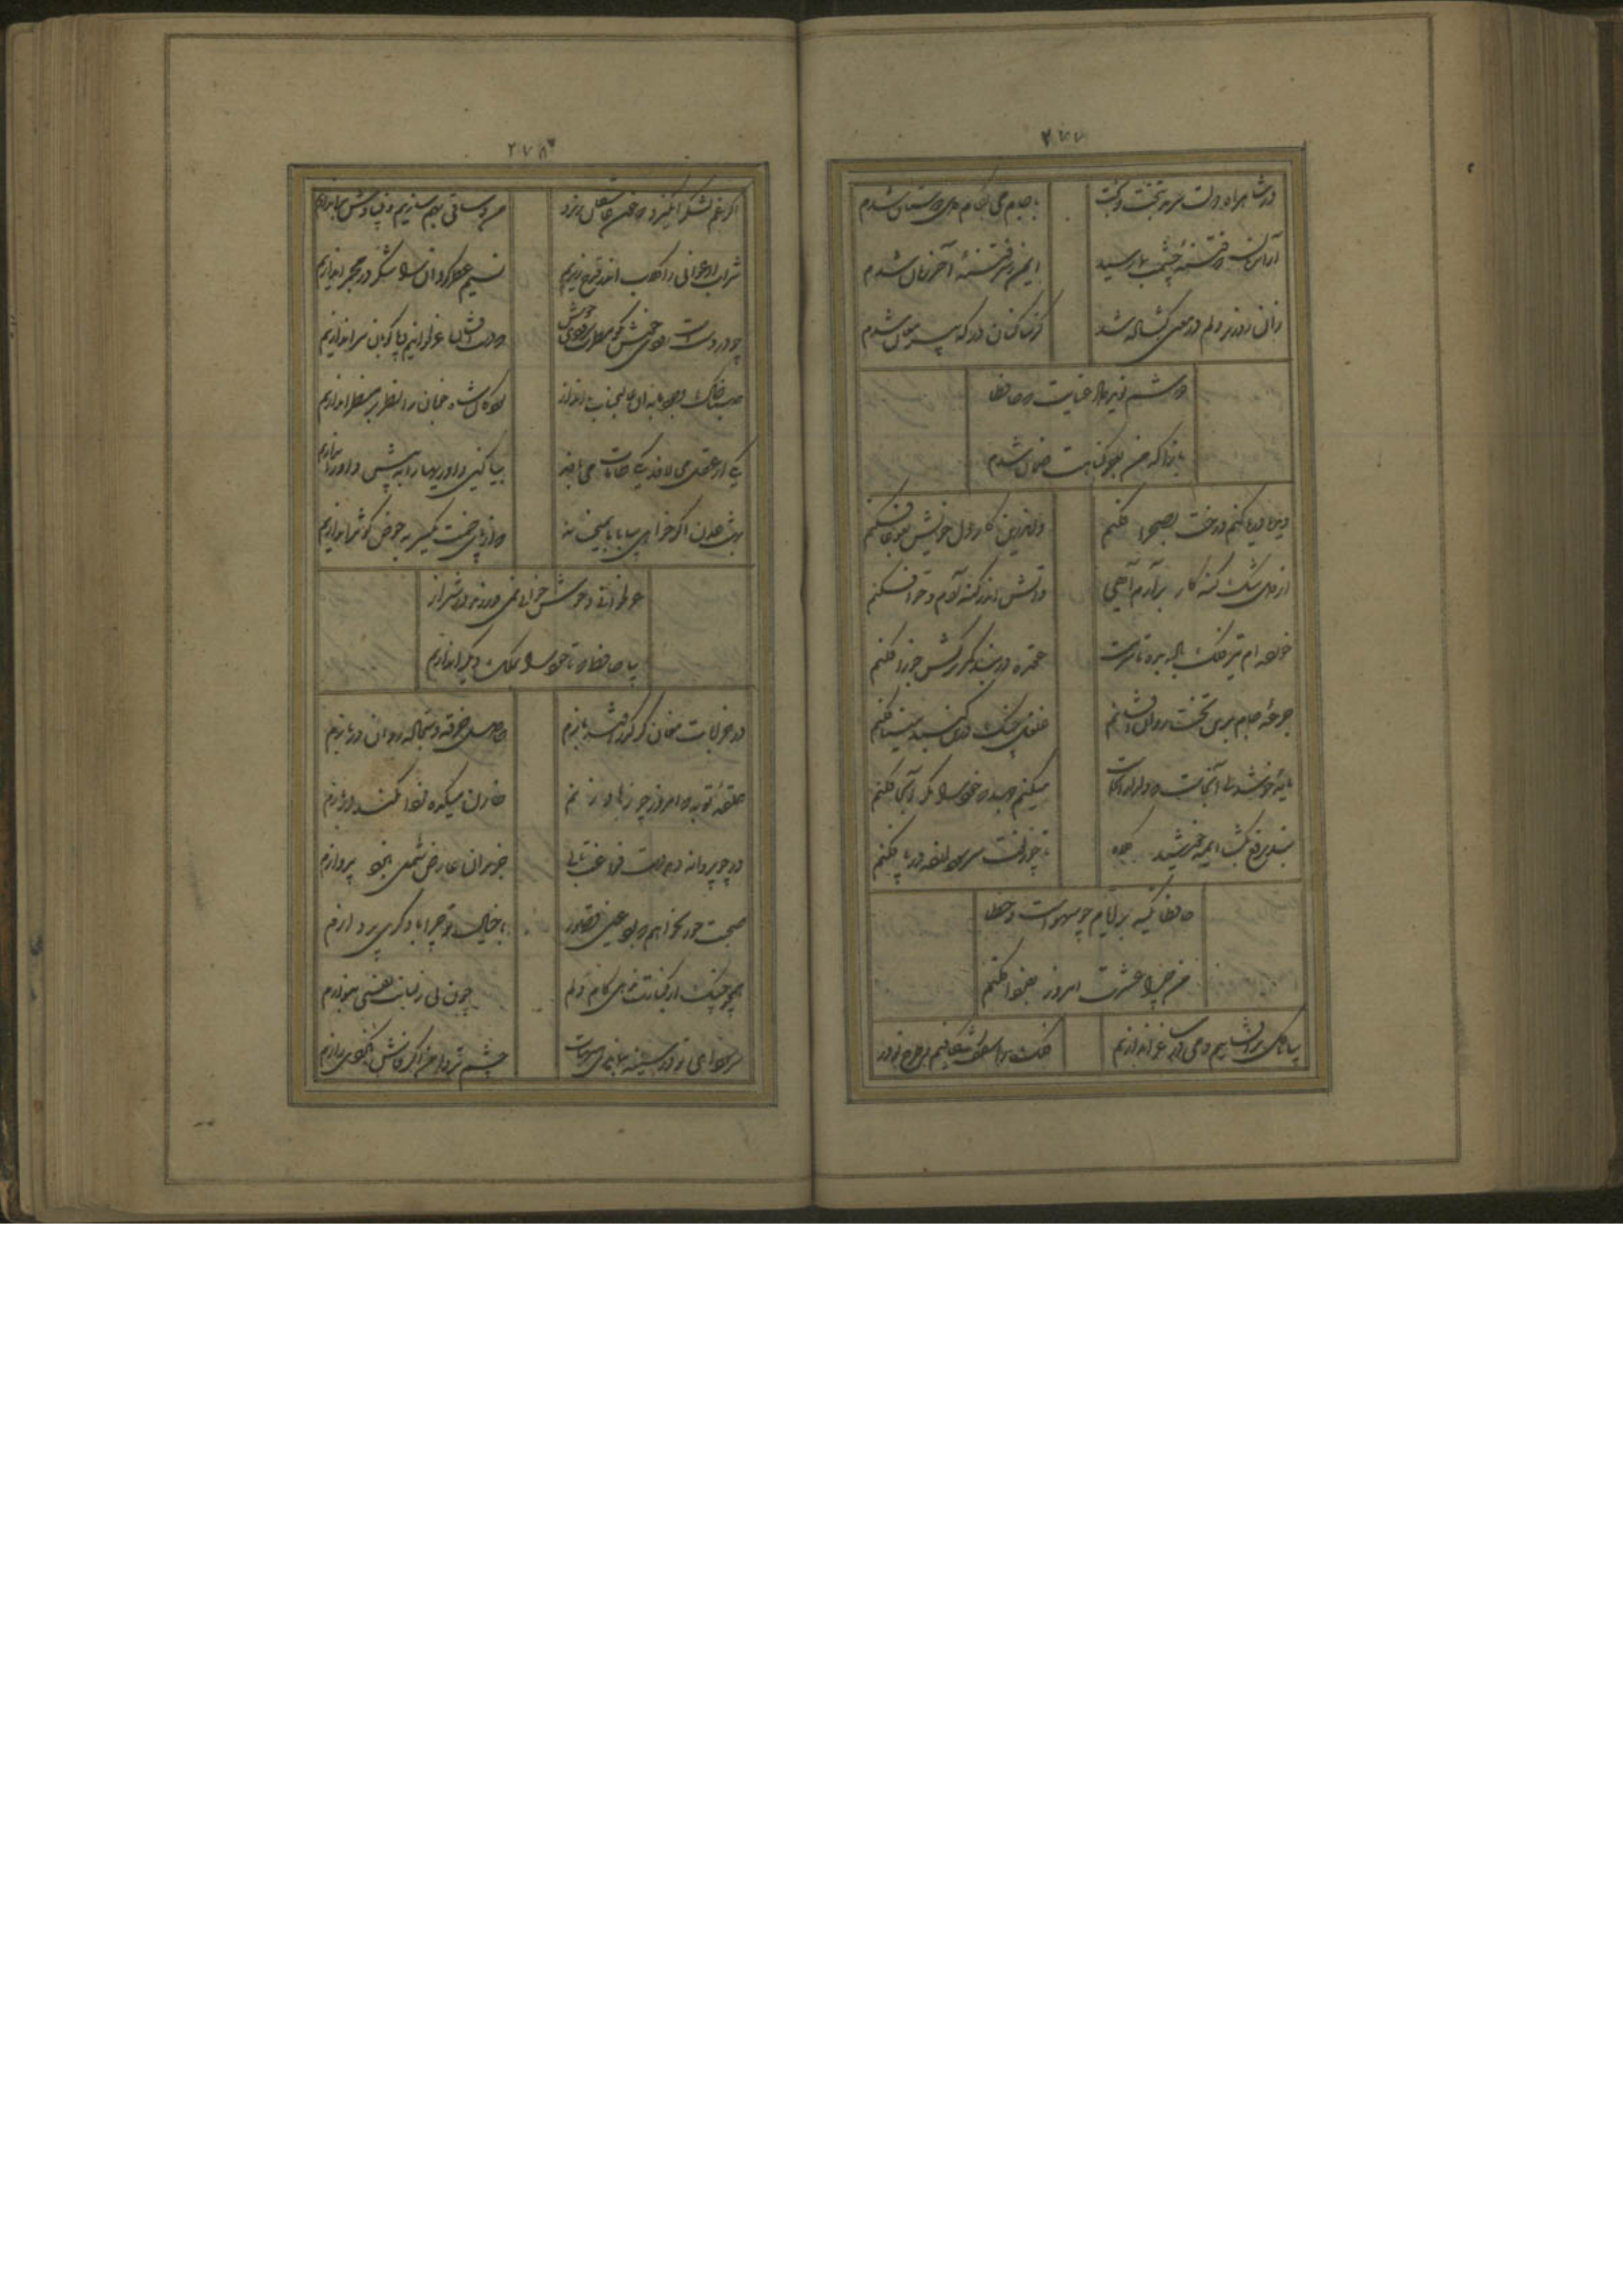 ۲۷۷
در شاهراه دولت سرمد بتخت و بخت
با جام می بکام دل دوستان شدم
از آن زمان که فتنهٔ چشمت بمن رسید
ایمن ز شر فتنهٔ آخر زمان شدم
زان روز بر دلم در معنی گشاده شد
کز ساکنان درگه پیر مغان شدم
دوشم نوید داد عنایت که حافظا
بازآ که من بعفو گناهت ضمان شدم
دیده دریا کنم و رخت بصحرا فکنم
واندرین کار دل خویش بدریا فکنم
از دل تنگ گنه کار برآرم آهی
کاتش اندر گنه آدم و حوا فکنم
خورده ام تیر فلک باده بده تا سرمست
عقده در بند کمر ترکش جوزا فکنم
جرعهٔ جام برین تخت روان افشانم
غلغل چنگ درین گنبد مینا فکنم
مایهٔ خوشدلی آنجاست که دلدار آنجاست
میکنم جهد که خود را مگر آنجا فکنم
بند برقع بگشا ای مه خورشید کلاه
تا چو زلفت سر سودازده در پا فکنم
حافظا تکیه بر ایام چو سهوست و خطا
من چرا عشرت امروز بفردا فکنم
بیا تا گل برافشانیم و می در ساغر اندازیم
فلک را سقف بشکافیم و طرح نو در
۲۷۸
اگر غم لشکر انگیزد که خون عاشقان ریزد
من و ساقی بهم سازیم و بنیادش براندازیم
شراب ارغوانی را گلاب اندر قدح ریزیم
نسیم عطرگردان را شکر در مجمر اندازیم
چو در دستست رودی خوش بگو مطرب سرودی خوش
که دست افشان غزل خوانیم و پاکوبان سر اندازیم
صبا خاک وجود ما بدان عالیجناب انداز
بود کان شاه خوبان را نظر بر منظر اندازیم
یکی از عقل می لافد یکی طامات می بافد
بیا کین داوریها را به پیش داور اندازیم
بهشت عدن اگر خواهی بیا با ما بمیخانه
که از پای خمت یکسر به حوض کوثر اندازیم
سخندانی و خوش خوانی نمی ورزند در شیراز
بیا حافظ که تا خود را بملک دیگر اندازیم
در خرابات مغان گر گذر افتد بازم
حاصل خرقه و سجاده روان در بازم
حلقهٔ توبه گر امروز چو زهاد زنم
خازن میکده فردا نکند در بازم
ور چو پروانه دهد دست فراغ بالی
جز بدان عارض شمعی نبود پروازم
صحبت حور نخواهم که بود عین قصور
با خیال تو چرا با دگری پردازم
همچو چنگ ار بکناری ندهی کام دلم
چون نی از لبانت نفسی بنوازم
سر سودای تو در سینه بماندی پنهان
چشم تر دامن اگر فاش نکردی رازم